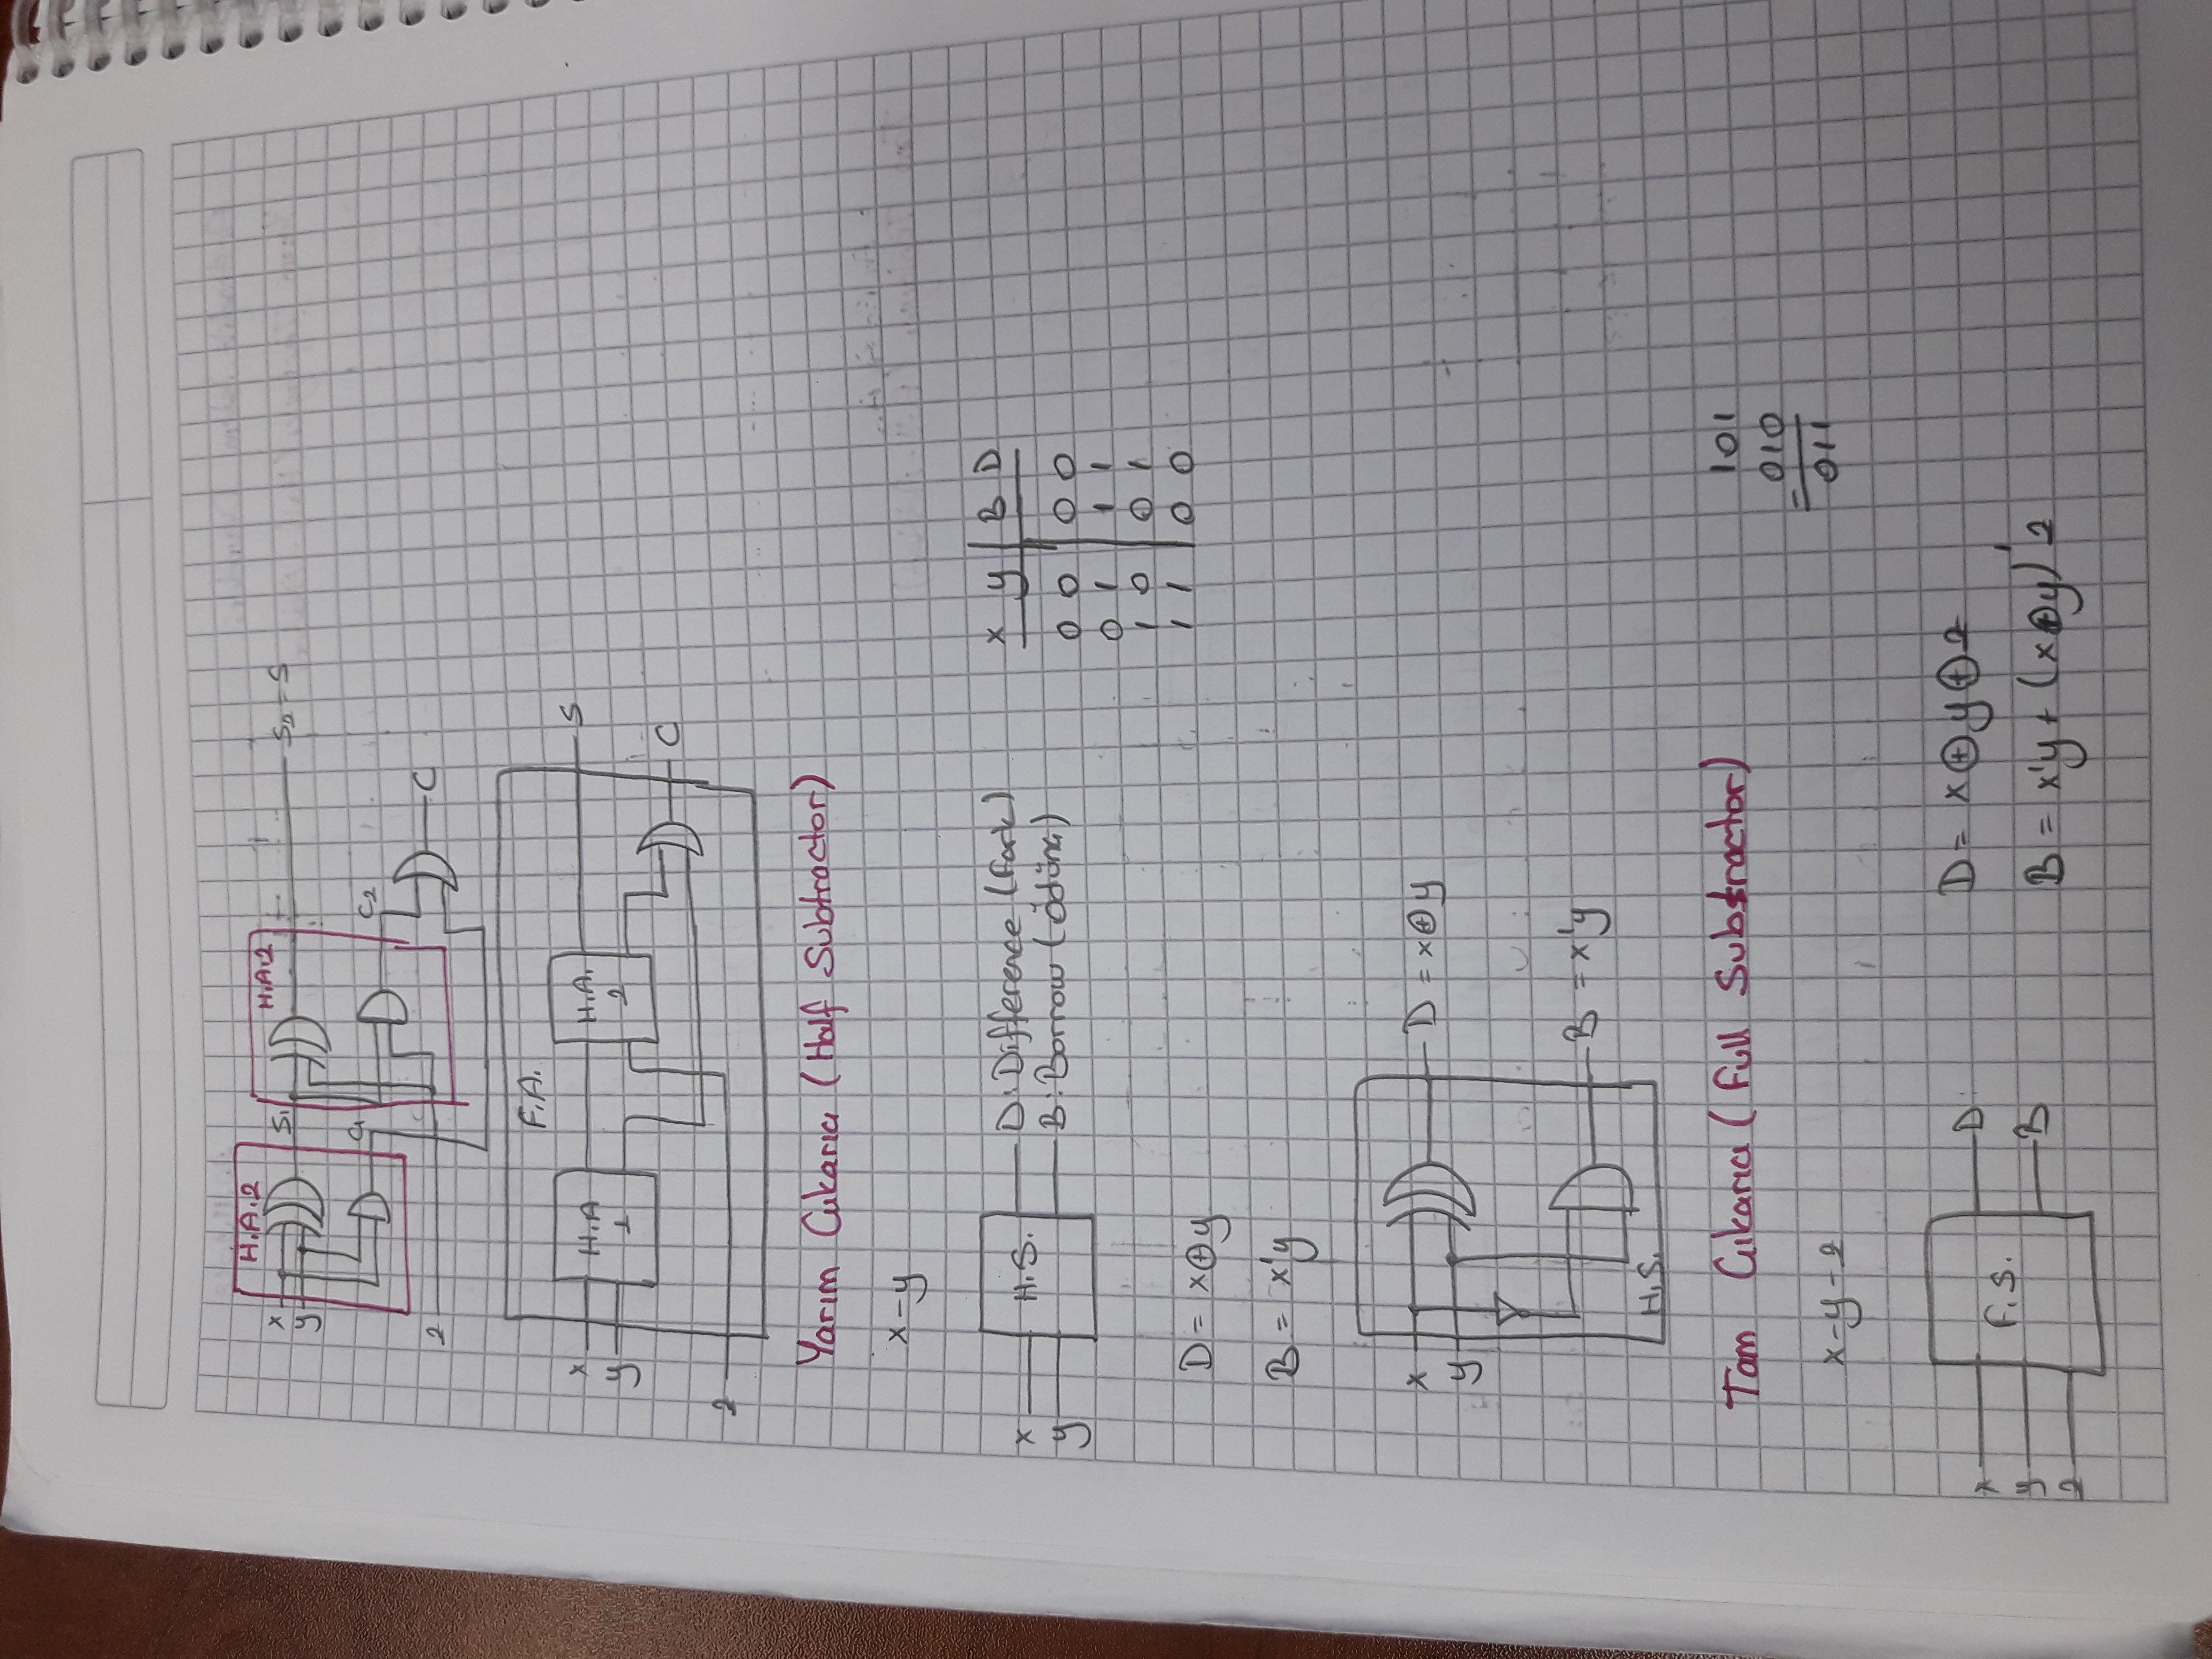 H.A.2
H.A.2
x
y
S₁
S₂ = S
C₁
C₂
z
C
F.A.
x
y
H.A
1
H.A.
2
S
C
z
Yarım Çıkarıcı (Half Subtractor)
x-y
x
y
H.S.
D: Difference (Fark)
B: Borrow (Ödünç)
x y | B D
0 0 | 0 0
0 1 | 1 1
1 0 | 0 1
1 1 | 0 0
D = x⊕y
B = x'y
x
y
D = x⊕y
B = x'y
H.S.
Tam Çıkarıcı (Full Subtractor)
101
010
-
011
x-y-z
x
y
z
F.S.
D
B
D = x⊕y⊕z
B = x'y + (x⊕y)'z